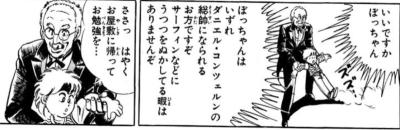 いいですか
ぼっちゃん
ぼっちゃんは
いずれ
ダニエル・コンツェルンの
総帥になられる
お方ですぞ
サーフィンなどに
うつつをぬかしてる暇は
ありませんぞ
ズズ…
ささっ はやく
お屋敷に帰って
お勉強を…